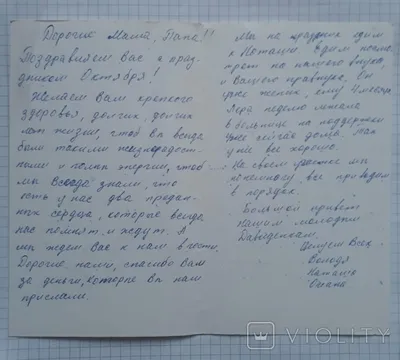 Дорогие Мама, Папа!!
Поздравляем Вас с праз-
дником Октября!
Желаем Вам крепкого
здоровья, долгих, долгих
лет жизни, чтоб Вы всегда
были такими жизнерадост-
ными и полны энергии, чтоб
мы всегда знали, что
есть у нас два предан-
ных сердца, которые всегда
нас помнят и ждут. А
мы ждем Вас к нам в гости.
Дорогие папа, спасибо Вам
за деньги, которые Вы нам
прислали.
Мы на праздник едим
к Наташи. Едим посмо-
треть на нашего внука,
и Вашего правнука. Он
уже жених, ему 4 месяца
Лера неделю лежала
в больнице на поддержки
уже сейчас дома. Так
у неё все хорошо.
На своем участке мы
по-немногу все приводим
в порядок.
Большой привет
нашим молодым
Целуем Всех
Володя
Наташа
VIOLITY